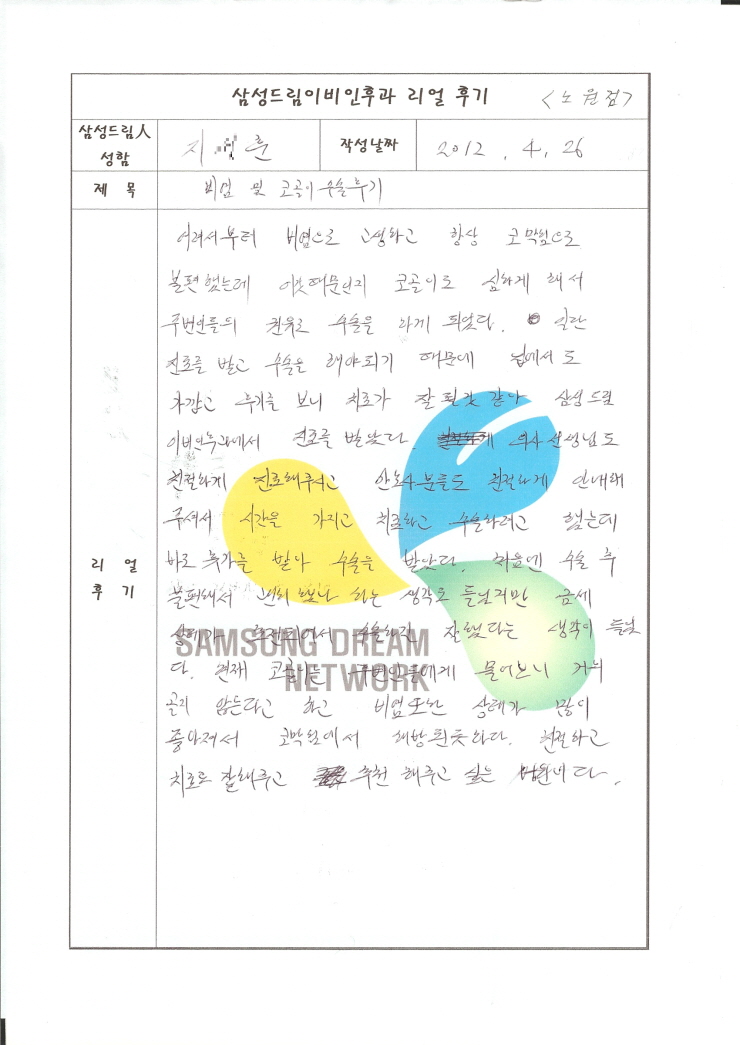 삼성드림이비인후과 리얼 후기 <노원점>
삼성드림人 성함 지 훈 작성날짜 2012. 4. 26
제 목 비염 및 코골이 수술후기
리 얼 후 기
어려서부터 비염으로 고생하고 항상 코막힘으로
불편했는데 이것때문인지 코골이도 심하게 해서
주변인들의 권유로 수술을 하게 되었다. 일단
진료를 받고 수술을 해야되기 때문에 집에서도
가깝고 후기를 보니 치료가 잘 될것 같아 삼성드림
이비인후과에서 진료를 받았다. 의사선생님도
친절하게 진료해주시고 간호사분들도 친절하게 안내해
주셔서 시간을 가지고 치료하고 수술하려고 했는데
바로 휴가를 받아 수술을 받았다. 처음엔 수술 후
불편해서 하는 생각도 들었지만 금세
상태가 호전되어서 수술하길 잘했다는 생각이 들었
다. 현재 코골이는 주변인들에게 물어보니 거의
골지 않는다고 하고 비염또한 상태가 많이
좋아져서 코막힘에서 해방된듯하다. 친절하고
치료도 잘해주고 추천 해주고 싶은 병원이다.
SAMSUNG DREAM
NETWORK